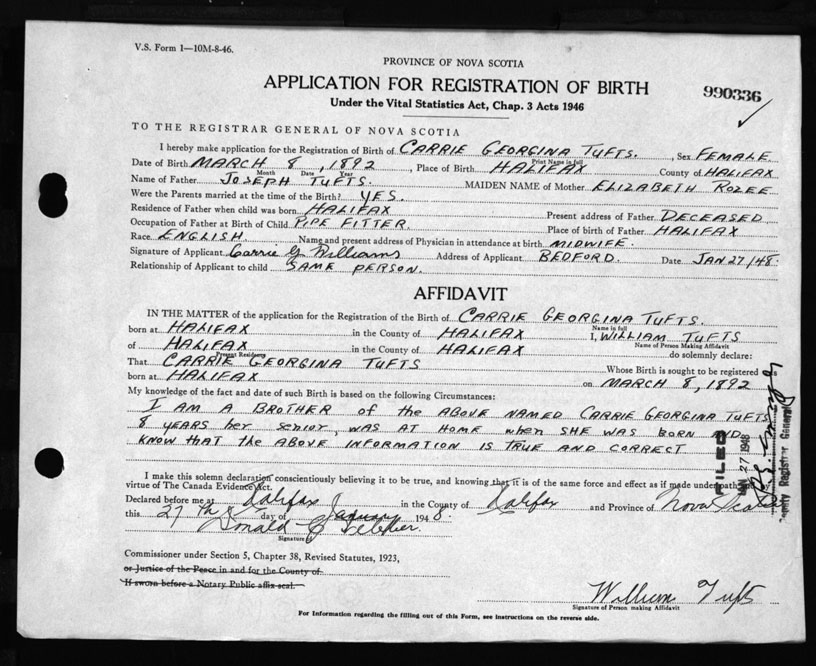 V.S. Form 1—10M-8-46.
PROVINCE OF NOVA SCOTIA
APPLICATION FOR REGISTRATION OF BIRTH
990336
Under the Vital Statistics Act, Chap. 3 Acts 1946
TO THE REGISTRAR GENERAL OF NOVA SCOTIA
I hereby make application for the Registration of Birth of CARRIE GEORGINA TUFTS. , Sex FEMALE
Print Name in full
Date of Birth MARCH 8, 1892 , Place of Birth HALIFAX County of HALIFAX
Month Date Year
Name of Father JOSEPH TUFTS. MAIDEN NAME of Mother ELIZABETH ROZEE
Were the Parents married at the time of the Birth? YES.
Residence of Father when child was born HALIFAX Present address of Father DECEASED
Occupation of Father at Birth of Child PIPE FITTER. Place of birth of Father HALIFAX
Race ENGLISH Name and present address of Physician in attendance at birth MIDWIFE.
Signature of Applicant Carrie G Williams Address of Applicant BEDFORD. Date JAN 27/48.
Relationship of Applicant to child SAME PERSON.
AFFIDAVIT
IN THE MATTER of the application for the Registration of the Birth of CARRIE GEORGINA TUFTS.
Name in full
born at HALIFAX in the County of HALIFAX I, WILLIAM TUFTS
Name of Person Making Affidavit
of HALIFAX in the County of HALIFAX do solemnly declare:
Present Residence
That CARRIE GEORGINA TUFTS Whose Birth is sought to be registered is
born at HALIFAX on MARCH 8, 1892
My knowledge of the fact and date of such Birth is based on the following Circumstances:
I AM A BROTHER of the ABOVE NAMED CARRIE GEORGINA TUFTS
8 YEARS her senior, WAS AT HOME when SHE WAS BORN AND
KNOW that the ABOVE INFORMATION IS TRUE AND CORRECT
FILED
27 1948
Deputy Registrar General
I make this solemn declaration conscientiously believing it to be true, and knowing that it is of the same force and effect as if made under oath
virtue of The Canada Evidence Act.
Declared before me at Halifax in the County of Halifax and Province of Nova Scotia
this 27th day of January 1948.
Donald
Signature
Commissioner under Section 5, Chapter 38, Revised Statutes, 1923,
or Justice of the Peace in and for the County of
If sworn before a Notary Public affix seal.
William Tufts
Signature of Person making Affidavit
For Information regarding the filling out of this Form, see instructions on the reverse side.